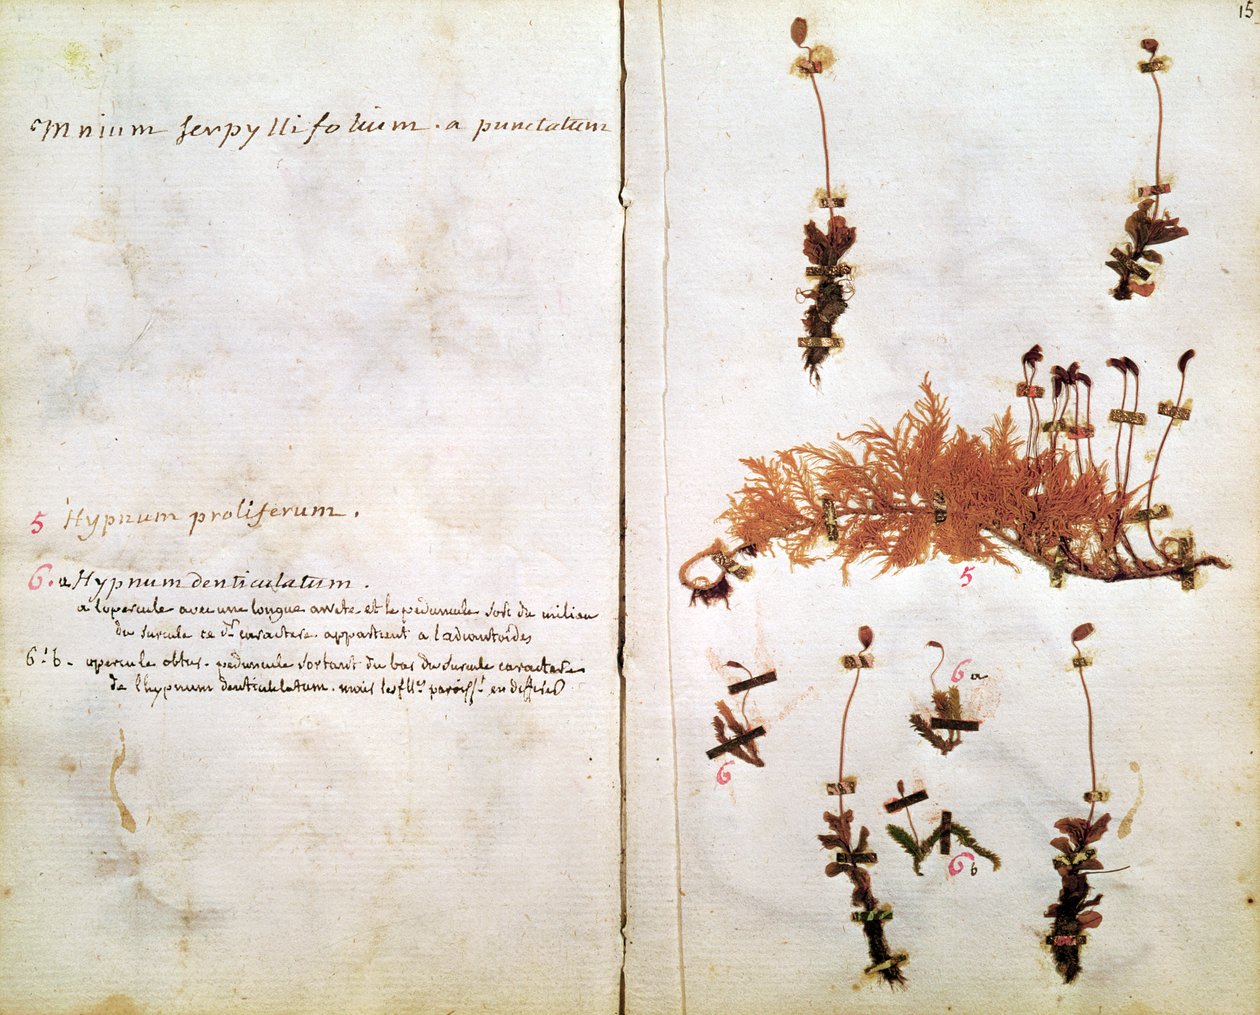 Mnium serpyllifolium . a punctatum
5 Hypnum proliferum .
6. a Hypnum denticulatum .
a lopercule avec une longue arrete. et le peduncule sort du milieu
du surcule ce dr. caractere. appartient a l'adiantoides
6. b - opercule obtus. peduncule sortant du bas du surcule caractere
de lhypnum denticulatum. mais les
15
5
6
6 a
6 b